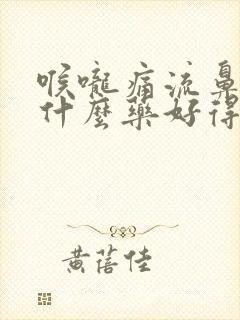 喉嚨痛流鼻
什麼藥好得
黃蓓佳